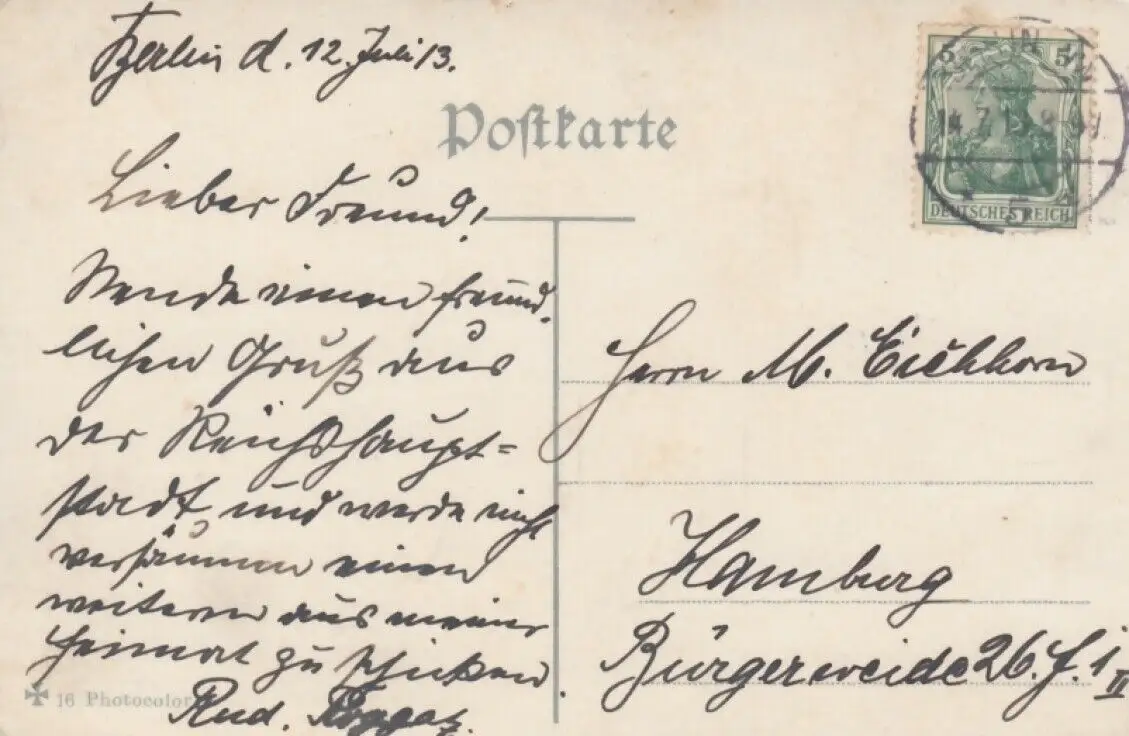 Berlin d. 12. Juli 13.
Postkarte
5 5
DEUTSCHES REICH
Lieber Freund!
Sende einen freund-
lichen Gruß aus
der Reichshaupt=
stadt und werde nicht
versäumen einen
weiteren aus meiner
Heimat zu schicken.
Rud.
16 Photocolor
Herrn M. Eichhorn
Hamburg
Bürgerweide 26. f. 1
II